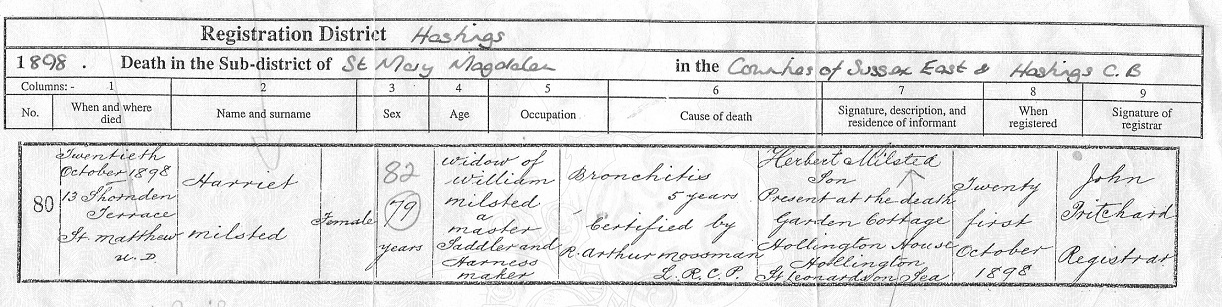 Registration District Hastings
1898. Death in the Sub-district of St Mary Magdalen in the Counties of Sussex East & Hastings C.B
Columns:- 1 2 3 4 5 6 7 8 9
No. When and where died Name and surname Sex Age Occupation Cause of death Signature, description, and residence of informant When registered Signature of registrar
80
Twentieth
October 1898
13 Thornden
Terrace
St. Matthew
U.D.
Harriet
Milsted
Female
82
79
years
widow of
William
Milsted
a
master
Saddler and
Harness
maker
Bronchitis
5 years
Certified by
R. Arthur Mossman
L.R.C.P.
Herbert Milsted
Son
Present at the death
Garden Cottage
Hollington House
Hollington
St Leonards on Sea
Twenty
first
October
1898
John
Pritchard
Registrar